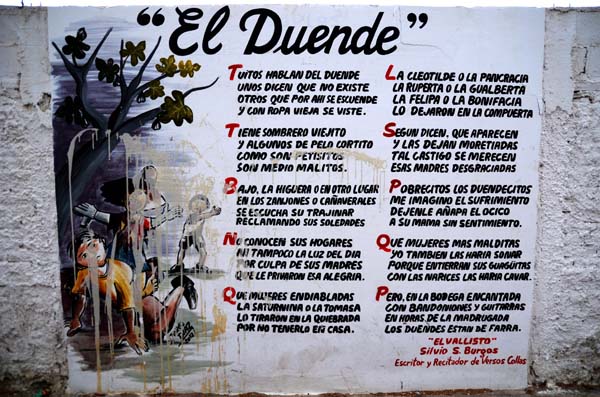 "El Duende"
TUITOS HABLAN DEL DUENDE
UNOS DICEN QUE NO EXISTE
OTROS QUE POR AHI SE ESCUENDE
Y CON ROPA VIEJA SE VISTE.
TIENE SOMBRERO VIEJITO
Y ALGUNOS DE PELO CORTITO
COMO SON PETISITOS
SON MEDIO MALITOS.
BAJO, LA HIGUERA O EN OTRO LUGAR
EN LOS ZANJONES O CAÑAVERALES
SE ESCUCHA SU TRAJINAR
RECLAMANDO SUS SOLEDADES
NO CONOCEN SUS HOGARES
NI TAMPOCO LA LUZ DEL DIA
POR CULPA DE SUS MADRES
QUE LE PRIVARON ESA ALEGRIA.
QUE MUJERES ENDIABLADAS
LA SATURNINA O LA TOMASA
LO TIRARON EN LA QUEBRADA
POR NO TENERLO EN CASA.
LA CLEOTILDE O LA PANCRACIA
LA RUPERTA O LA GUALBERTA
LA FELIPA O LA BONIFACIA
LO DEJARON EN LA COMPUERTA
SEGUN DICEN, QUE APARECEN
Y LAS DEJAN MORETIADAS
TAL CASTIGO SE MERECEN
ESAS MADRES DESGRACIADAS
POBRECITOS LOS DUENDECITOS
ME IMAGINO EL SUFRIMIENTO
DEJENLE AÑAPA EL OCICO
A SU MAMA SIN SENTIMIENTO.
QUE MUJERES MAS MALDITAS
YO TAMBIEN LAS HARIA SONAR
PORQUE ENTIERRAN SUS GUAGÜITAS
CON LAS NARICES LAS HARIA CAVAR.
PERO, EN LA BODEGA ENCANTADA
CON BANDONIONES Y GUITARRAS
EN HORAS DE LA MADRUGADA
LOS DUENDES ESTAN DE FARRA.
"EL VALLISTO"
Silvio S. Burgos
Escritor y Recitador de Versos Collas